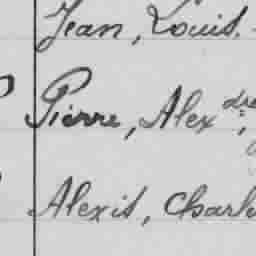 Jean, Louis.
Pierre, Alex dre,
Alexis, Charl